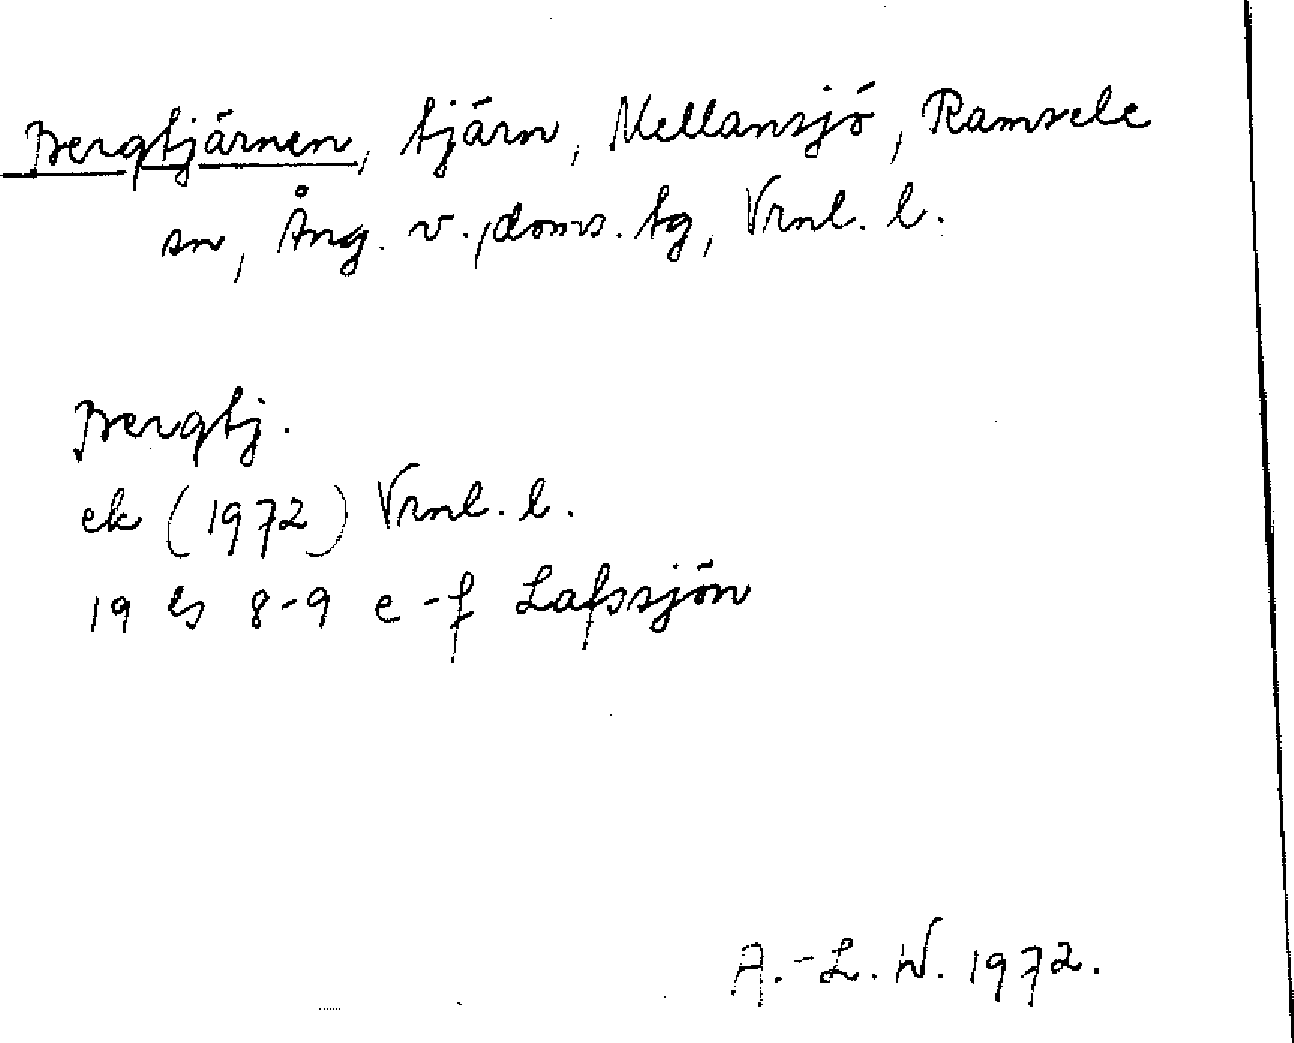 Bergtjärnen, tjärn, Mellansjö, Ramsele
sn, Ång. v., doms. tg, Vrnl. l.
Bergtj.
ek (1972) Vrnl. l.
19 G 8-9 e-f Lafssjön
A.-L. W. 1972.